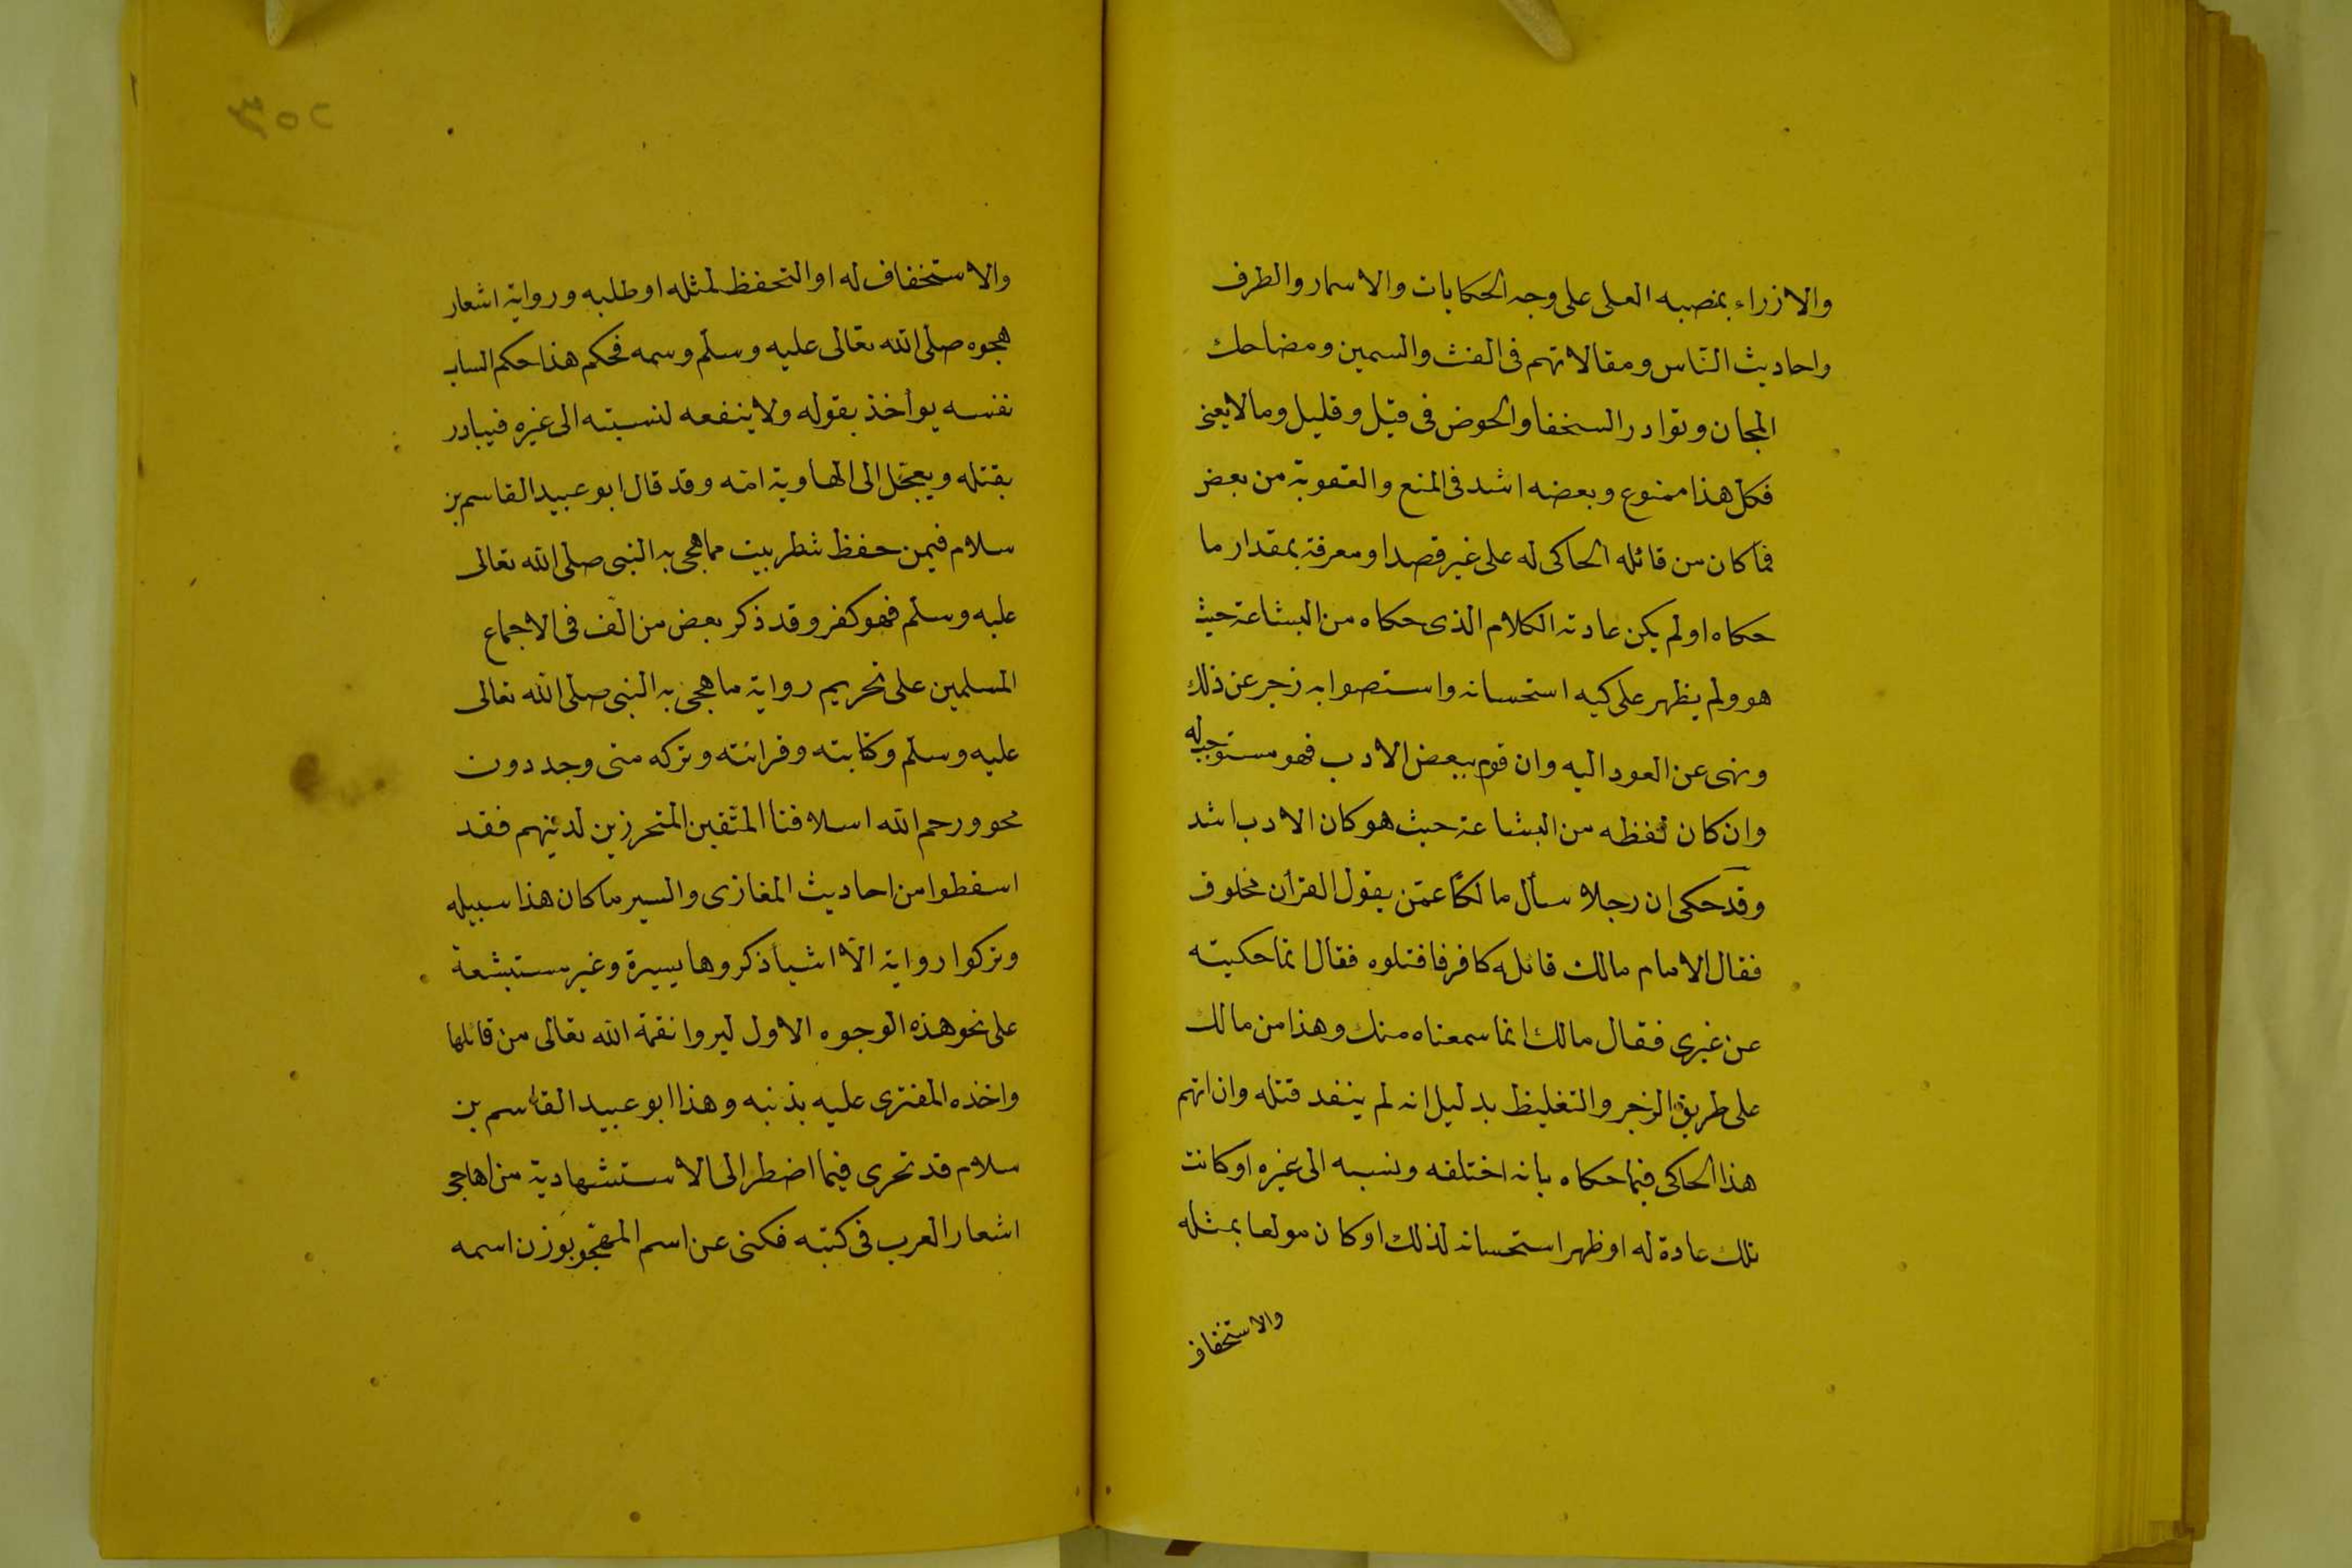 والازراء بمنصبه العلى على وجه الحكايات والاسمار والطرف
واحاديث النّاس ومقالاتهم فى الغث والسمين ومضاحك
المجان ونوادر السخفا والخوض فى قيل وقليل ومالا يعنى
فكل هذا ممنوع وبعضه اشد فى المنع والعقوبة من بعض
فما كان من قائله الحاكى له على غير قصد او معرفة بمقدار ما
حكاه اولم يكن عادته الكلام الذى حكاه من البشاعة حيث
هو ولم يظهر على كيه استحسانه واستصوابه زجر عن ذلك
ونهى عن العود اليه وان قوم ببعض الادب فهو مستوجب له
وان كان لفظه من البشاعة حيث هو كان الادب اشد
وقد حكى ان رجلا سأل مالكا عمّن يقول القرأن مخلوق
فقال الامام مالك قائله كافر فاقتلوه فقال انما حكيته
عن غيرى فقال مالك انما سمعناه منك وهذا من مالك
على طريق الزجر والتغليظ بدليل انه لم ينفد قتله وان اتهم
هذا الحاكى فيما حكاه بانه اختلفه ونسبه الى غيره او كانت
تلك عادة له او ظهر استحسانه لذلك او كان مولعا بمثله
والاستخفاف
٢٥٣
والاستخفاف له او التحفظ لمثله او طلبه ورواية اشعار
هجوه صلى الله تعالى عليه وسلم وسمه فحكم هذا حكم الساب
نفسه يوأخذ بقوله ولا ينفعه لنسبته الى غيره فيبادر
بقتله ويعجّل الى الهاوية امّه وقد قال ابو عبيد القاسم بن
سلام فيمن حفظ شطر بيت مما هجى به النبى صلى الله تعالى
عليه وسلم فهو كفر وقد ذكر بعض من الّف فى الاجماع
المسلمين على تحريم رواية ما هجى به النبى صلى الله تعالى
عليه وسلم وكتابته وقرائته وتركه متى وجد دون
محو ورحم الله اسلافنا المتّقين المتحرزين لدينهم فقد
اسقطوا من احاديث المغازى والسير ما كان هذا سبيله
وتركوا رواية الّا اشيأ ذكروها يسيرة وغير مستبشعة
على نحو هذه الوجوه الاول ليروا نقمة الله تعالى من قائلها
واخذه المفترى عليه بذنبه وهذا ابو عبيد القاسم بن
سلام قد تحرى فيما اضطر الى الاستشهاد به من اهاجى
اشعار العرب فى كتبه فكنى عن اسم المهجو بوزن اسمه